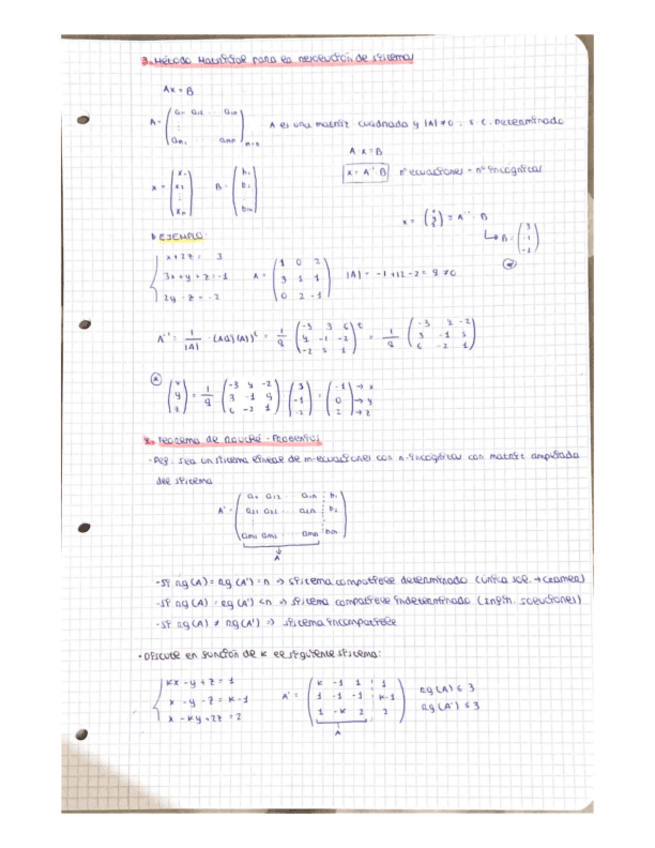 3. Método Matricial para la resolución de sistemas
Ax = B
A = ( a₁₁ a₁₂ ... a₁ₙ ; ⋮ ; aₙ₁ ... aₙₙ )ₙₓₙ A es una matriz cuadrada y |A| ≠ 0 : S. C. Determinado
A · x = B
x = ( x₁ ; x₂ ; ⋮ ; xₙ ) B = ( b₁ ; b₂ ; ⋮ ) x = A⁻¹ · B nº ecuaciones = nº incógnitas
x = ( x ; y ; z ) = A⁻¹ · B
↳ B = ( 3 ; -1 ; -2 )
EJEMPLO:
{ x + 2z = 3
3x + y + z = -1 A = ( 1 0 2 ; 3 1 1 ; 0 2 -1 ) |A| = -1 + 12 - 2 = 9 ≠ 0
2y - z = -2
A⁻¹ = 1/|A| · (Adj(A))ᵗ = 1/9 ( -3 3 6 ; 4 -1 -2 ; -2 5 1 )ᵗ = 1/9 ( -3 4 -2 ; 3 -1 5 ; 6 -2 1 )
( x ; y ; z ) = 1/9 ( -3 4 -2 ; 3 -1 5 ; 6 -2 1 ) ( 3 ; -1 ; -2 ) = ( -1 ; 0 ; 2 ) → x → y → z
Teorema de Rouché - Frobenius
· Def: Sea un sistema lineal de m-ecuaciones con n-incógnitas con matriz ampliada
del sistema
A' = ( a₁₁ a₁₂ ... a₁ₙ b₁ ; a₂₁ a₂₂ ... a₂ₙ b₂ ; ⋮ ; aₘ₁ aₘ₂ ... aₘₙ bₘ )
A
- Si rg(A) = rg(A') = n → sistema compatible determinado (única sol. → Cramer)
- Si rg(A) = rg(A') < n → sistema compatible indeterminado (infin. soluciones)
- Si rg(A) ≠ rg(A') ⇒ sistema incompatible
· Discute en función de K el siguiente sistema:
{ Kx - y + z = 1
x - y - z = K-1
x - Ky + 2z = 2
A' = ( K -1 1 1 ; 1 -1 -1 K-1 ; 1 -K 2 2 ) rg(A) ≤ 3
rg(A') ≤ 3
A